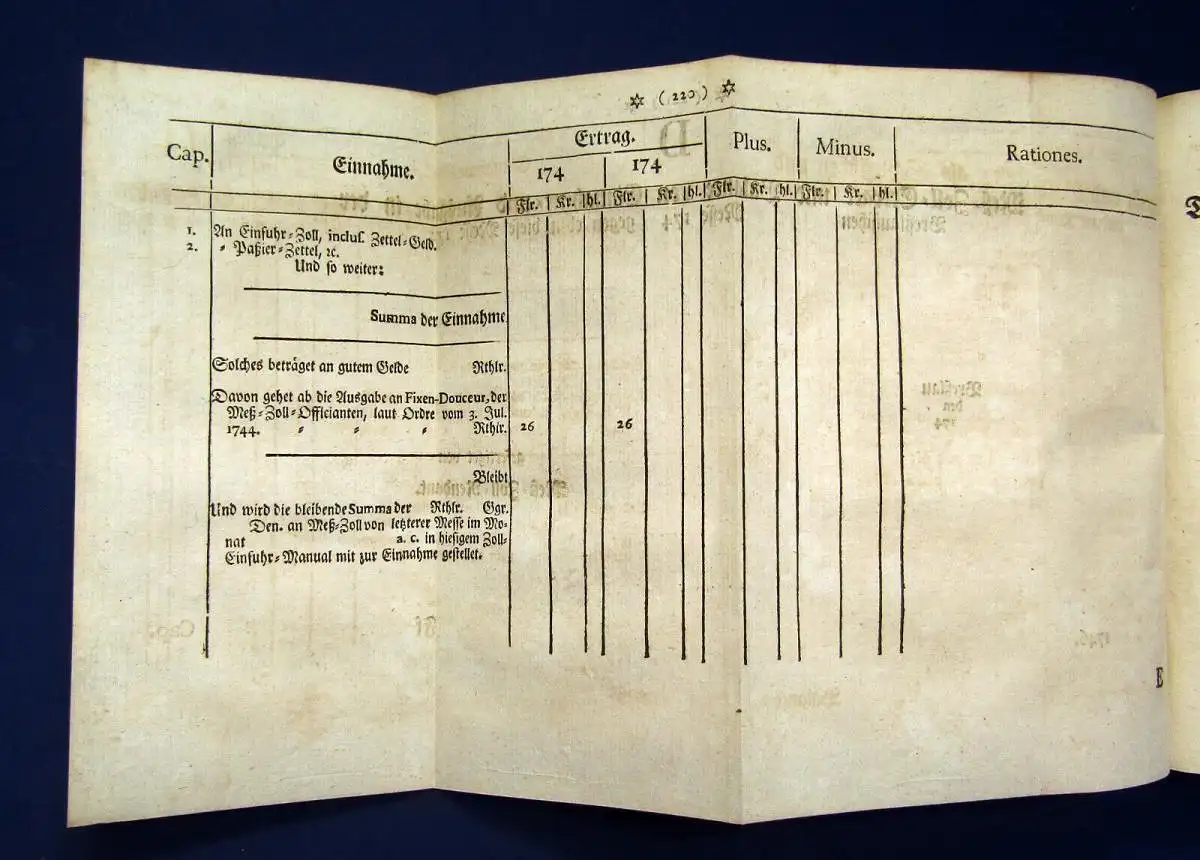 ✡ ( 220 ) ✡
Cap. Einnahme. Ertrag. Plus. Minus. Rationes.
174 174
Flr. Kr. hl. Flr. Kr. hl. Flr. Kr. hl. Flr. Kr. hl.
1. An Einfuhr-Zoll, inclus. Zettel-Geld.
2. " Paßier-Zettel, ꝛc.
Und so weiter:
Summa der Einnahme
Solches beträget an gutem Gelde Rthlr.
Davon gehet ab die Ausgabe an Fixen-Douceur, der
Meß-Zoll-Officianten, laut Ordre vom 3. Jul.
1744. " " " Rthlr. 26 26
Bleibt
Und wird die bleibende Summa der Rthlr. Ggr.
Den. an Meß-Zoll von letzterer Messe im Mo-
nat a. c. in hiesigem Zoll-
Einfuhr-Manual mit zur Einnahme gestellet.
E